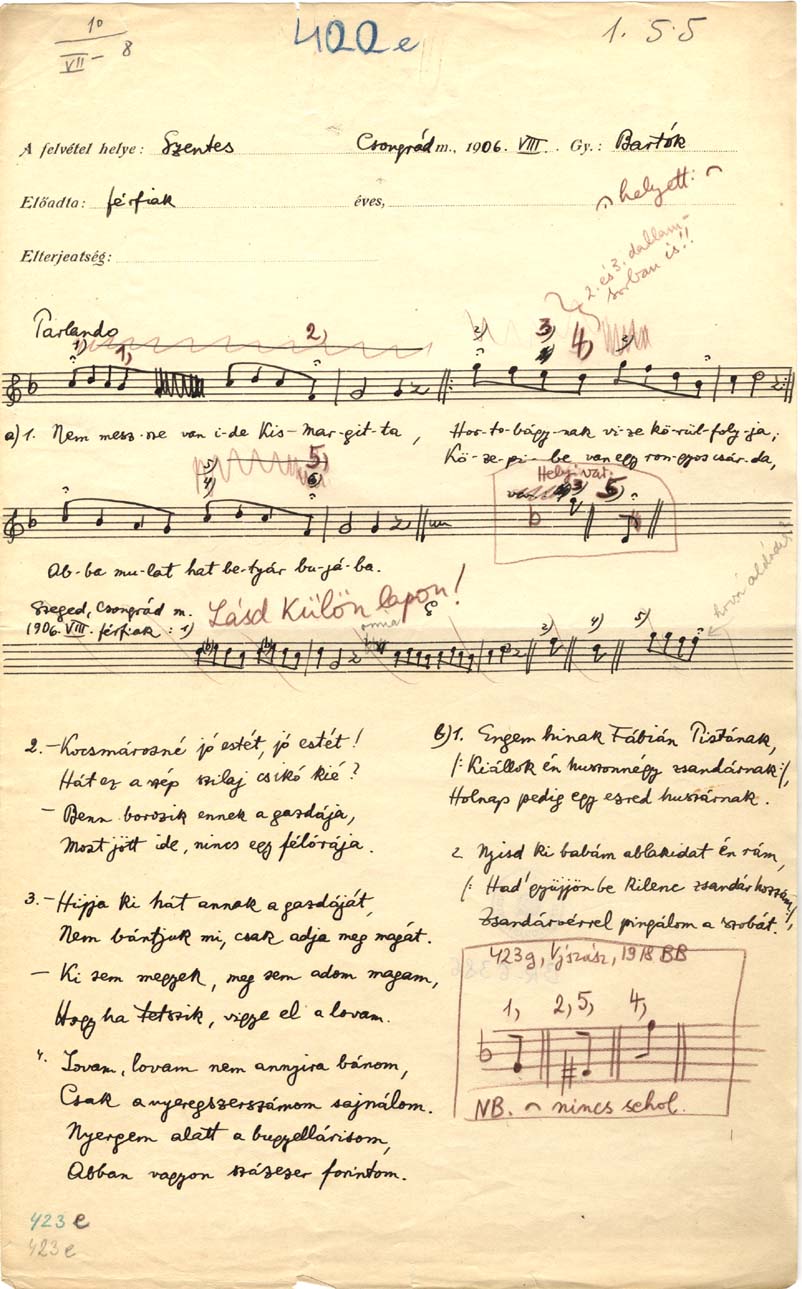 10
VII - 8
422e
1. 5.5
A felvétel helye: Szentes Csongrád m., 1906. VIII. Gy.: Bartók
Előadta: férfiak éves,
helyett:
Elterjeatség:
2. és 3. dallam-
sorban is!!
Parlando
1) 1, 2, 2) 3, 4,
a) 1. Nem mesz-sze van i-de Kis-Mar-git-ta, Hor-to-bágy-nak vi-ze kö-rül-foly-ja;
Kö-ze-pi-be van egy ron-gyos csár-da,
5, 4) 6)
Helyi var.
5,
Ab-ba mu-lat hat be-tyár bu-já-ba.
Szeged, Csongrád m. Lásd Külön lapon!
1906. VIII. férfiak: 1)
2) 4) 5)
2. – Kocsmárosné jó estét, jó estét!
Hát ez a szép szilaj csikó kié?
– Benn borozik ennek a gazdája,
Most jött ide, nincs egy félórája.
3. – Hijja ki hát annak a gazdáját,
Nem bántjuk mi, csak adja meg magát.
– Ki sem megyek, meg sem adom magam,
Hogy ha tetszik, vigye el a lovam.
4. Lovam, lovam nem annyira bánom,
Csak a nyeregszerszámom sajnálom.
Nyergem alatt a bugyellárisom,
Abban vagyon százezer forintom.
b) 1. Engem hinak Fábián Pistának,
/: Kiállok én huszonnégy zsandárnak :/,
Holnap pedig egy ezred huszárnak.
2 Nyisd ki babám ablakidat én rám,
/: Had' gyüjjön be kilenc zsandár hozzám :/,
Zsandárvérrel pingálom a szobát.
423g, Ujszász, 1918 BB
1, 2, 5, 4,
NB. nincs sehol.
423 e
423 e